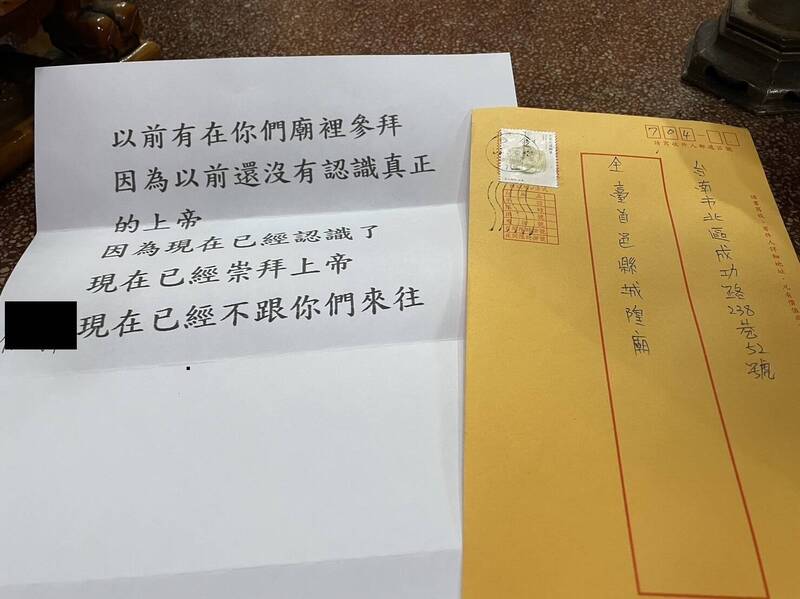 以前有在你們廟裡參拜
因為以前還沒有認識真正
的上帝
因為現在已經認識了
現在已經崇拜上帝
現在已經不跟你們來往
704
請寫收件人郵遞區號
台南市北區成功路238巷52號
全臺首邑縣城隍廟